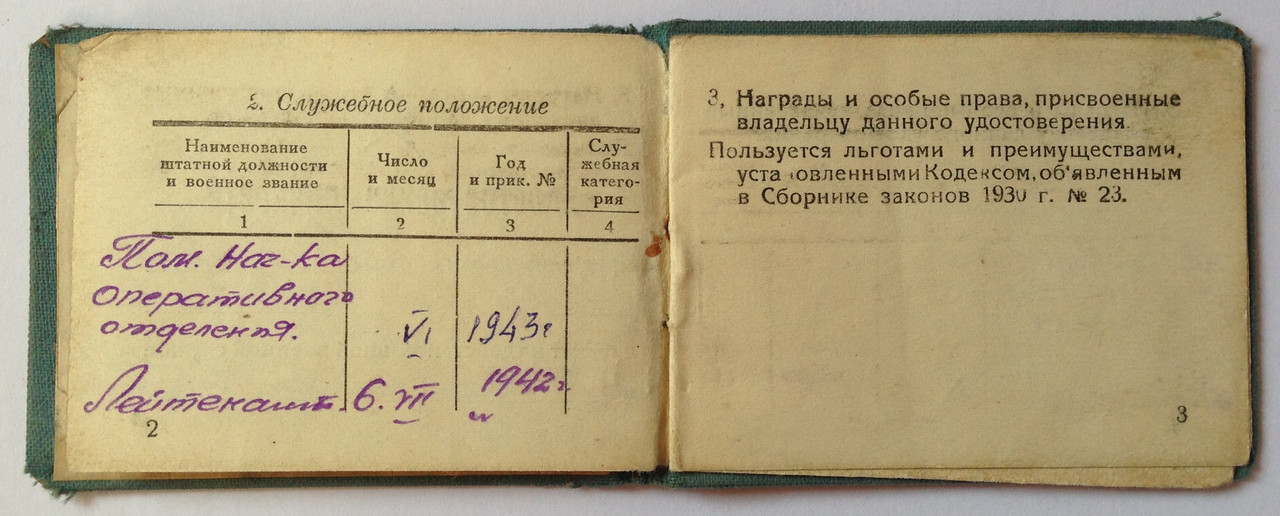 2. Служебное положение
Наименование
штатной должности
и военное звание
Число
и месяц
Год
и прик. №
Слу-
жебная
катего-
рия
1
2
3
4
Пом. Нач-ка
оперативного
отделения.
VI
1943г
Лейтенант.
6. VII
1942г.
2
3, Награды и особые права, присвоенные
владельцу данного удостоверения.
Пользуется льготами и преимуществами,
уста овленными Кодексом, об'явленным
в Сборнике законов 1930 г. № 23.
3